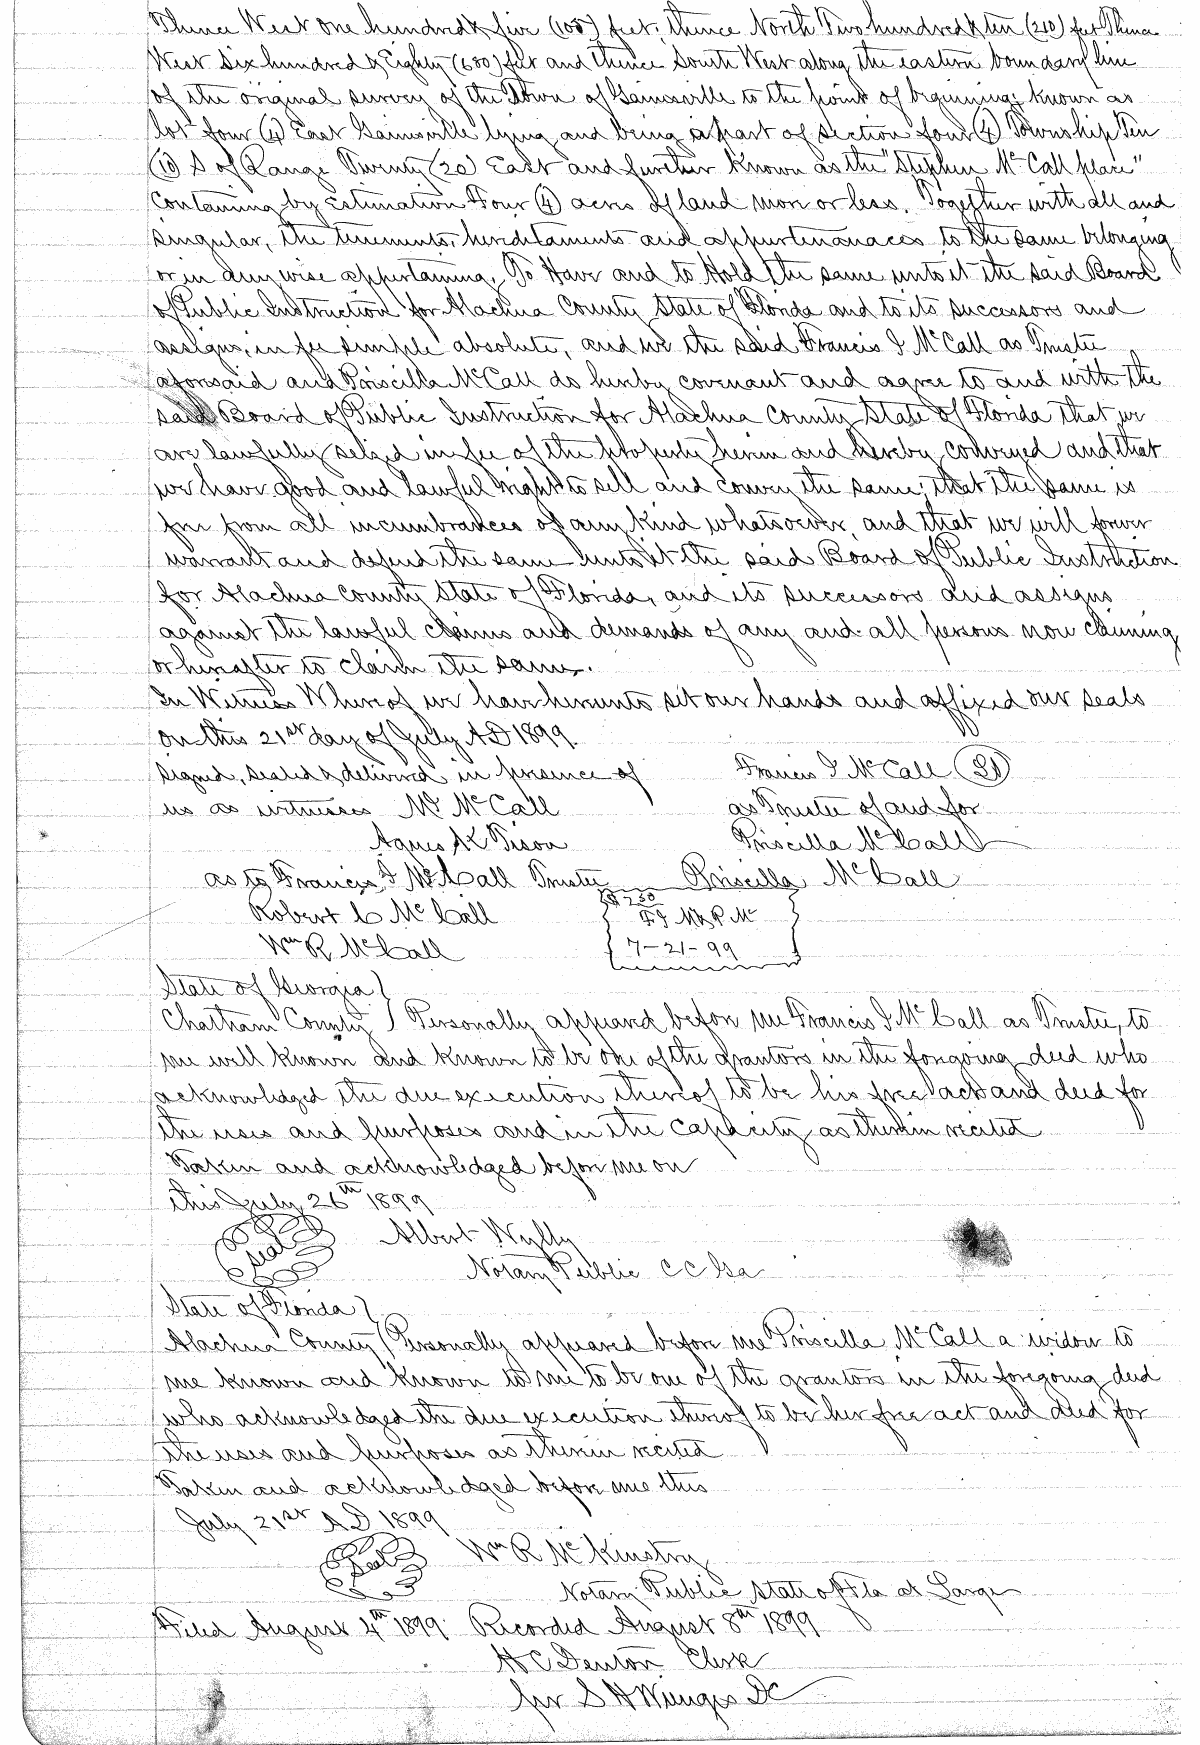 Thence West one hundred & five (105) feet; thence North Two hundred & ten (210) feet Thence
West Six hundred & Eighty (680) feet and thence South West along the eastern boundary line
of the original survey of the Town of Gainesville to the point of beginning; known as
lot four (4) East Gainesville lying and being a part of section four (4) Township Ten
(10) S of Range Twenty (20) East and further known as the "Stephen McCall place"
Containing by Estimation Four (4) acres of land more or less. Together with all and
singular, the tenements, hereditaments and appurtenances to the same belonging
or in anywise appertaining, To Have and to Hold the same unto it the said Board
of Public Instruction for Alachua County State of Florida and to its successors and
assigns, in fee simple absolute, and we the said Francis I McCall as Trustee
aforesaid and Priscilla McCall do hereby covenant and agree to and with the
said Board of Public Instruction for Alachua County State of Florida that we
are lawfully seized in fee of the property herein and hereby conveyed and that
we have good and lawful right to sell and convey the same; that the same is
free from all incumbrances of any kind whatsoever, and that we will forever
warrant and defend the same unto it the said Board of Public Instruction
for Alachua County State of Florida, and its successors and assigns
against the lawful claims and demands of any and all persons now claiming
or hereafter to claim the same.
In Witness Whereof we have hereunto set our hands and affixed our seals
on this 21st day of July AD 1899.
Signed, sealed & delivered in presence of Francis I McCall
us as witnesses McCall as Trustee of and for
Agnes K Tison Priscilla McCall
as to Francis I McCall Trustee Priscilla McCall
Robert C McCall $2.50
Wm R McCall 7-21-99
State of Georgia
Chatham County Personally appeared before me Francis I McCall as Trustee, to
me well known and known to be one of the grantors in the foregoing deed who
acknowledged the due execution thereof to be his free act and deed for
the uses and purposes and in the capacity as therein recited
Taken and acknowledged before me on
this July 26th 1899
Seal Albert Wylly
Notary Public C C Ga
State of Florida
Alachua County Personally appeared before me Priscilla McCall a widow to
me known and known to me to be one of the grantors in the foregoing deed
who acknowledged the due execution thereof to be her free act and deed for
the uses and purposes as therein recited
Taken and acknowledged before me this
July 21st A.D 1899
Seal Wm R McKinstry
Notary Public State of Fla at Large
Filed August 4th 1899 Recorded August 8th 1899
H C Denton Clerk
per S H Wienges DC